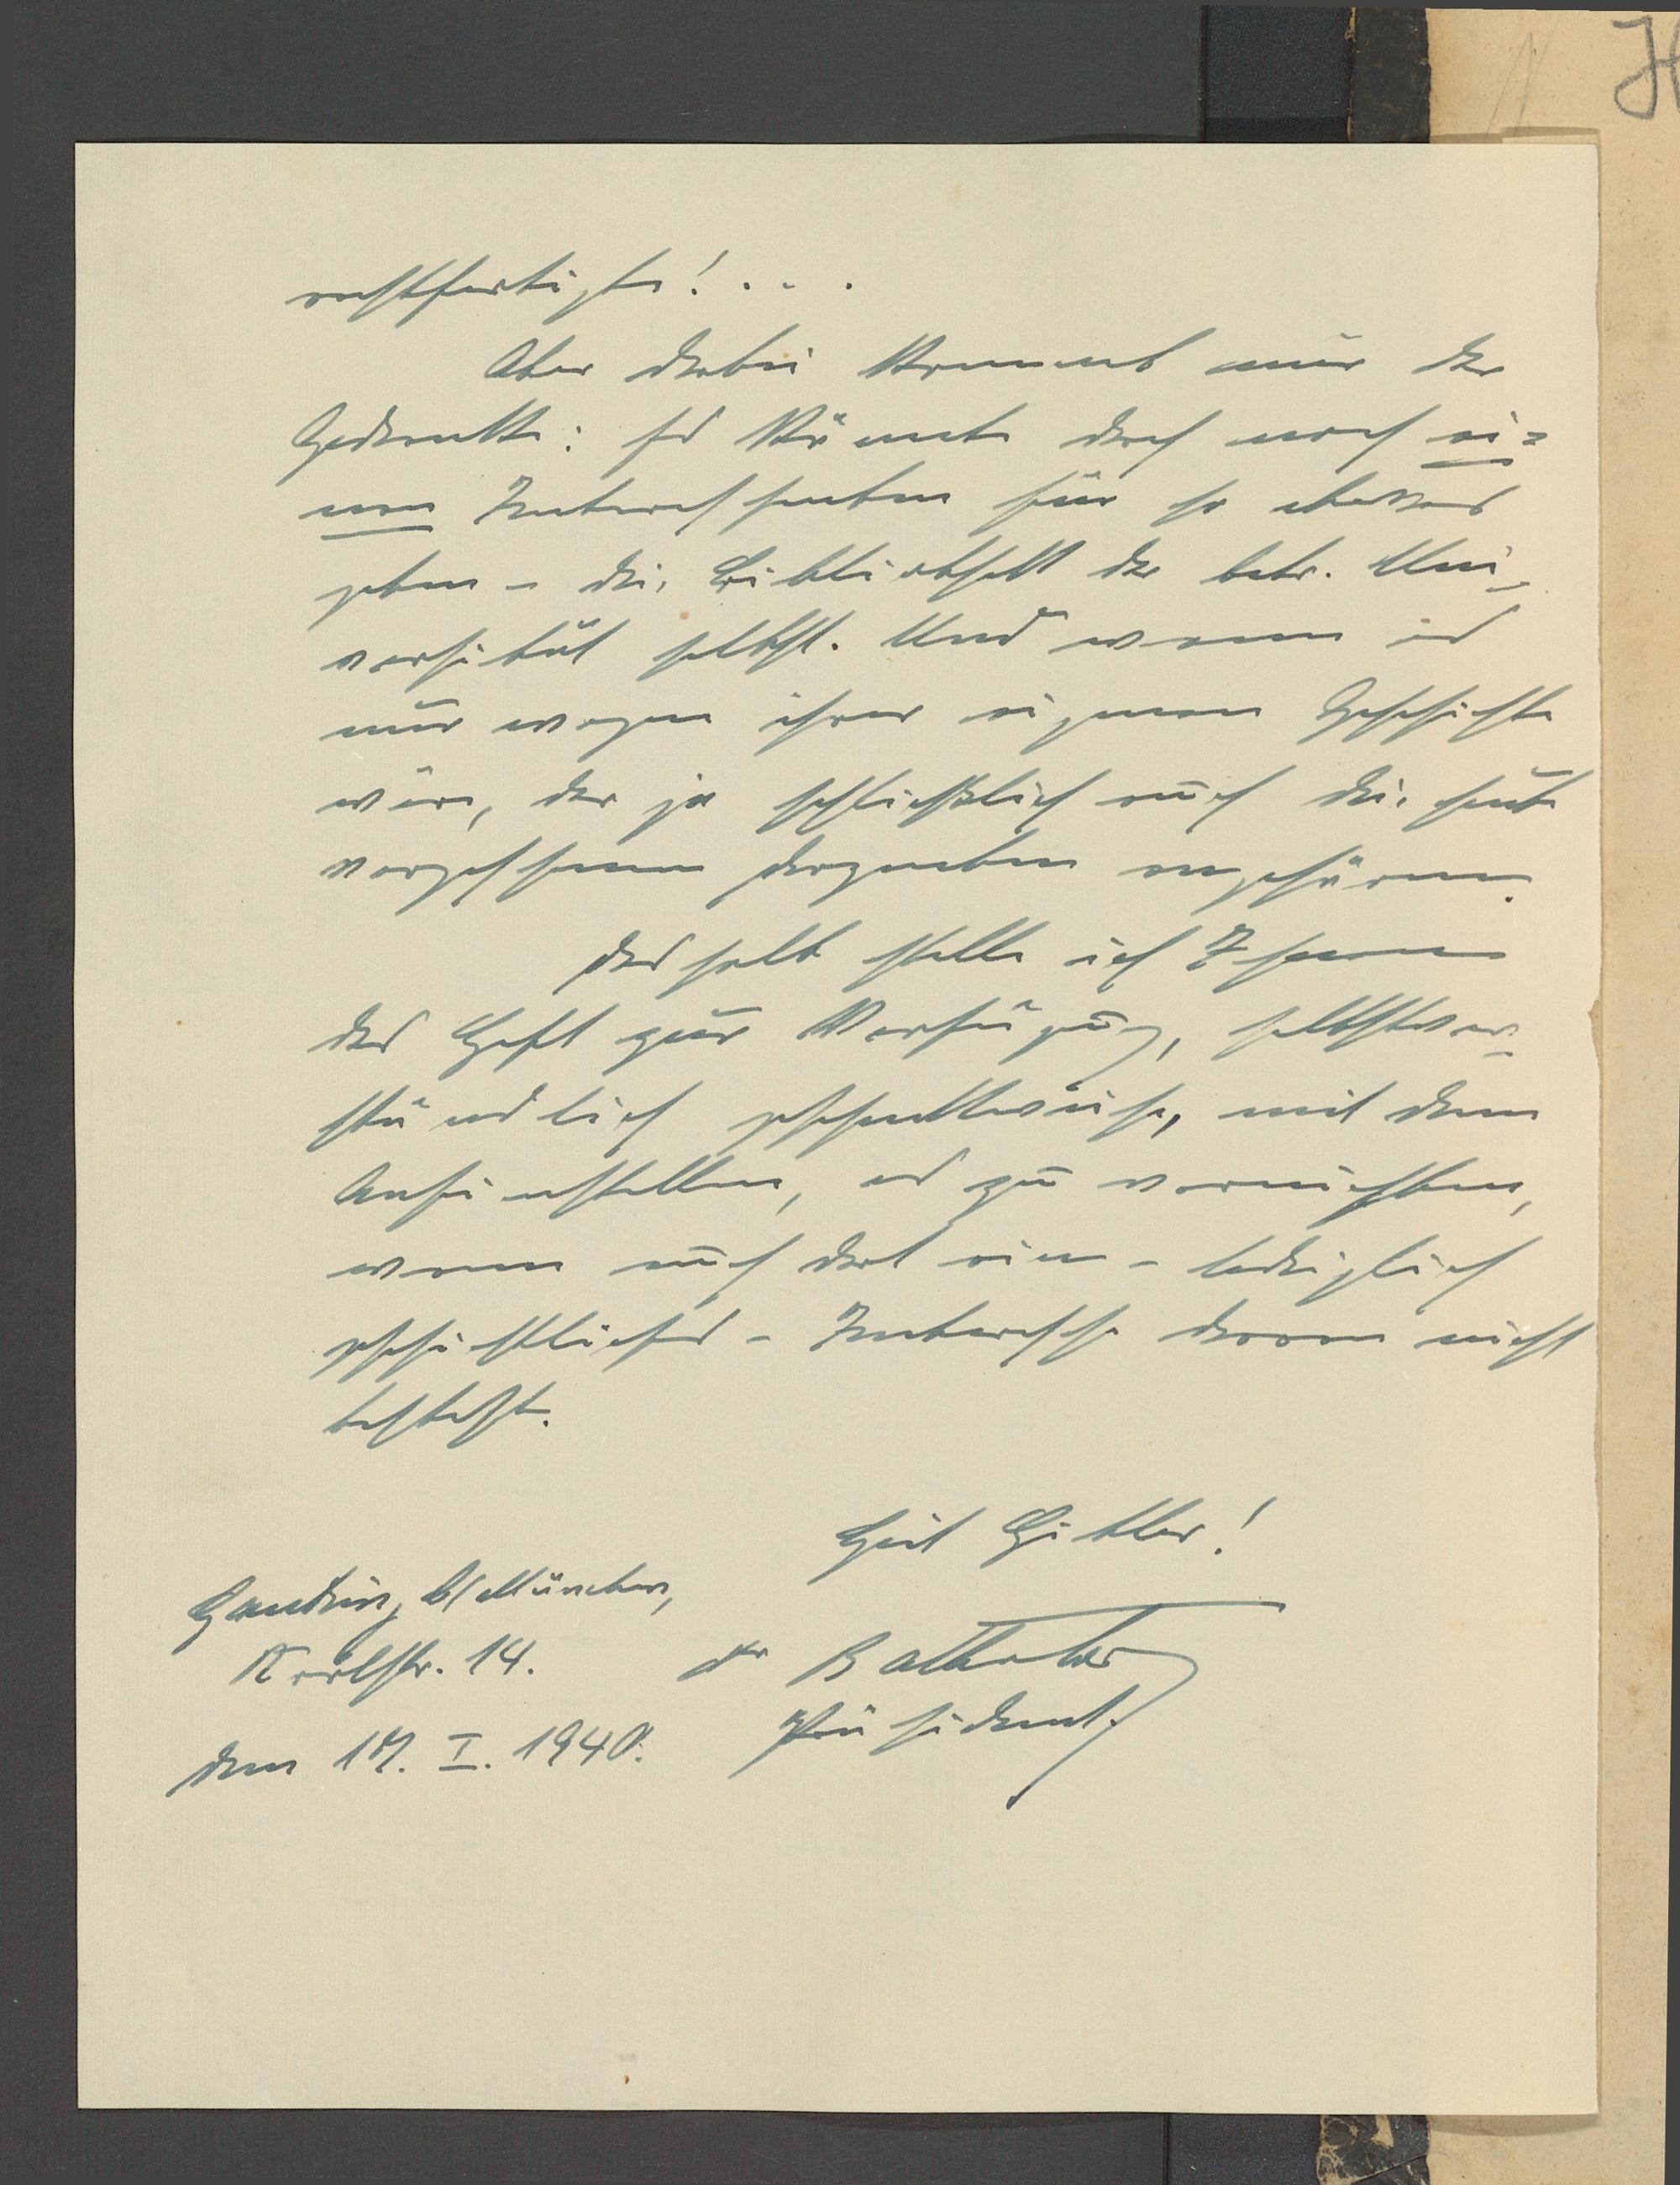 rechtfertigte! . . .
Aber dabei kommt mir der
Gedanke: Es könnte doch noch ei=
nen Interessenten für so etwas
geben – die Bibliothek der betr. Uni-
versität selbst. Und wenn es
nur wegen ihrer eigenen Geschichte
wäre, der ja schließlich auch die heute
vergessenen Dozenten angehören.
Deshalb stelle ich Ihnen
das Heft zur Verfügung, selbstver-
ständlich geschenkweise, mit dem
Anheimstellen, es zu vernichten,
wenn auch dort ein – lediglich
geschichtliches – Interesse daran nicht
besteht.
Heil Hitler!
Gauting b/ München,
Karlstr. 14.
Dr
Präsident.
den 17. I. 1940.